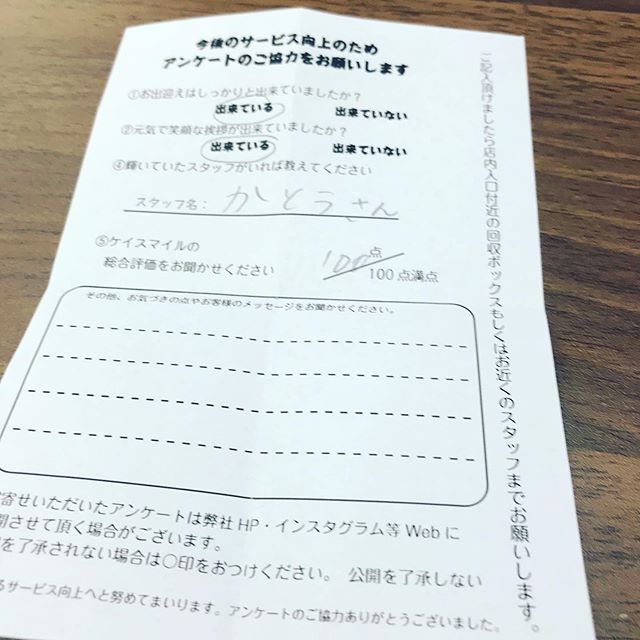 今後のサービス向上のため
アンケートのご協力をお願いします
①お出迎えはしっかりと出来ていましたか？
出来ている 出来ていない
②元気で笑顔な挨拶が出来ていましたか？
出来ている 出来ていない
④輝いていたスタッフがいれば教えてください
スタッフ名： かとうさん
⑤ケイスマイルの
総合評価をお聞かせください
100 点
100 点満点
その他、お気づきの点やお客様のメッセージをお聞かせください。
寄せいただいたアンケートは弊社 HP・インスタグラム等 Web に
開させて頂く場合がございます。
を了承されない場合は〇印をおつけください。 公開を了承しない
るサービス向上へと努めてまいります。アンケートのご協力ありがとうございました。
ご記入頂けましたら店内入口付近の回収ボックスもしくはお近くのスタッフまでお願いします。